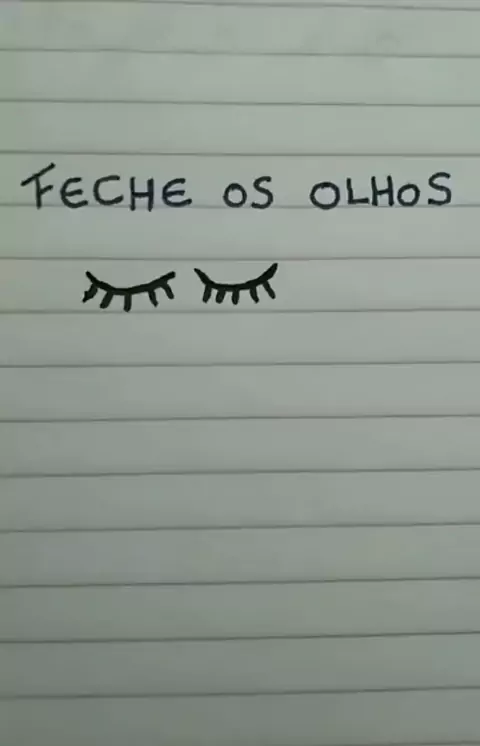 FECHE OS OLHOS